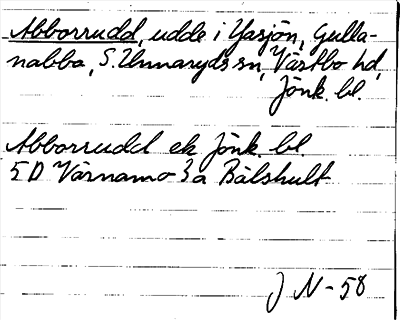 Abborrudd, udde i Yasjön, Gulla-
nabba, S. Unnaryds sn, Västbo hd,
Jönk. bl.
Abborrudd ek Jönk. bl.
5D Värnamo 3a Bälshult
J N - 58